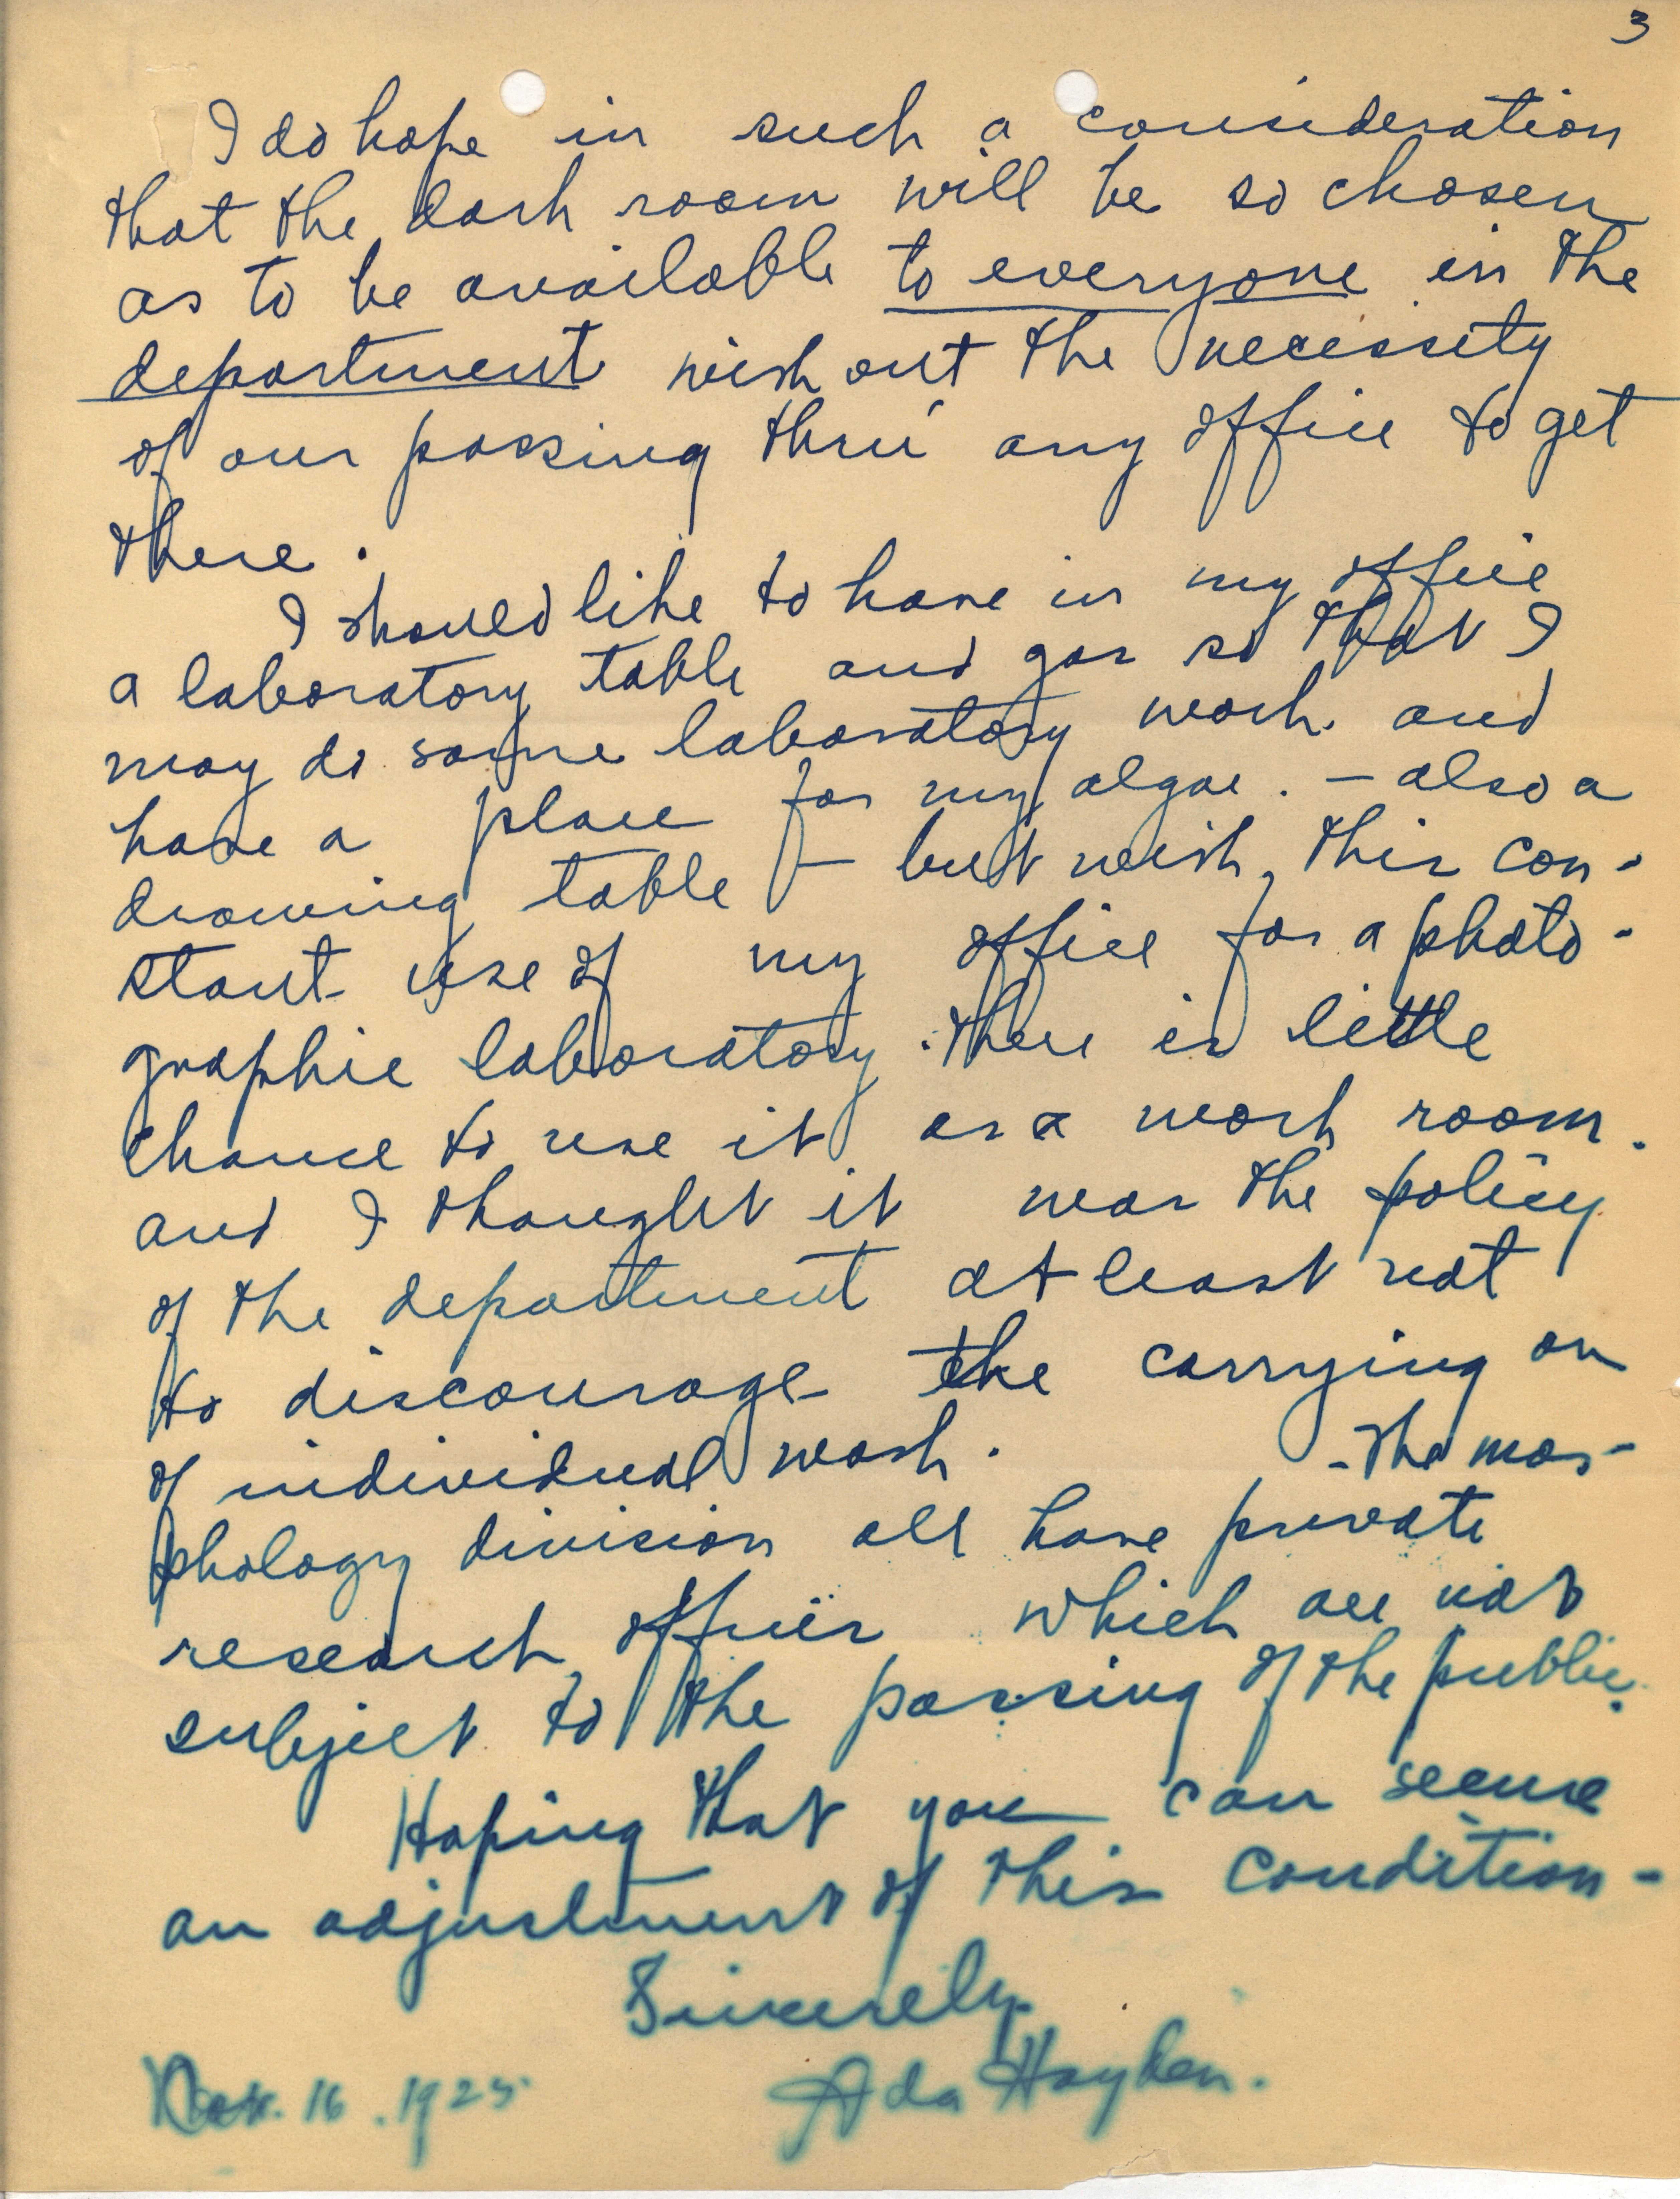 3
I do hope in such a consideration
that the dark room will be so chosen
as to be available to everyone in the
department without the necessity
of our passing thru any office to get
there.
I should like to have in my office
a laboratory table and gas so that I
may do some laboratory work and
have a place for my algae. - also a
drawing table - but with this con-
stant use of my office for a photo-
graphic laboratory there is little
chance to use it as a work room.
and I thought it was the policy
of the department at least not
to discourage the carrying on
of individual work. - The mor-
phology division all have private
research offices which are not
subject to the passing of the public.
Hoping that you can secure
an adjustment of this condition -
Sincerely
Ada Hayden.
16. 1925